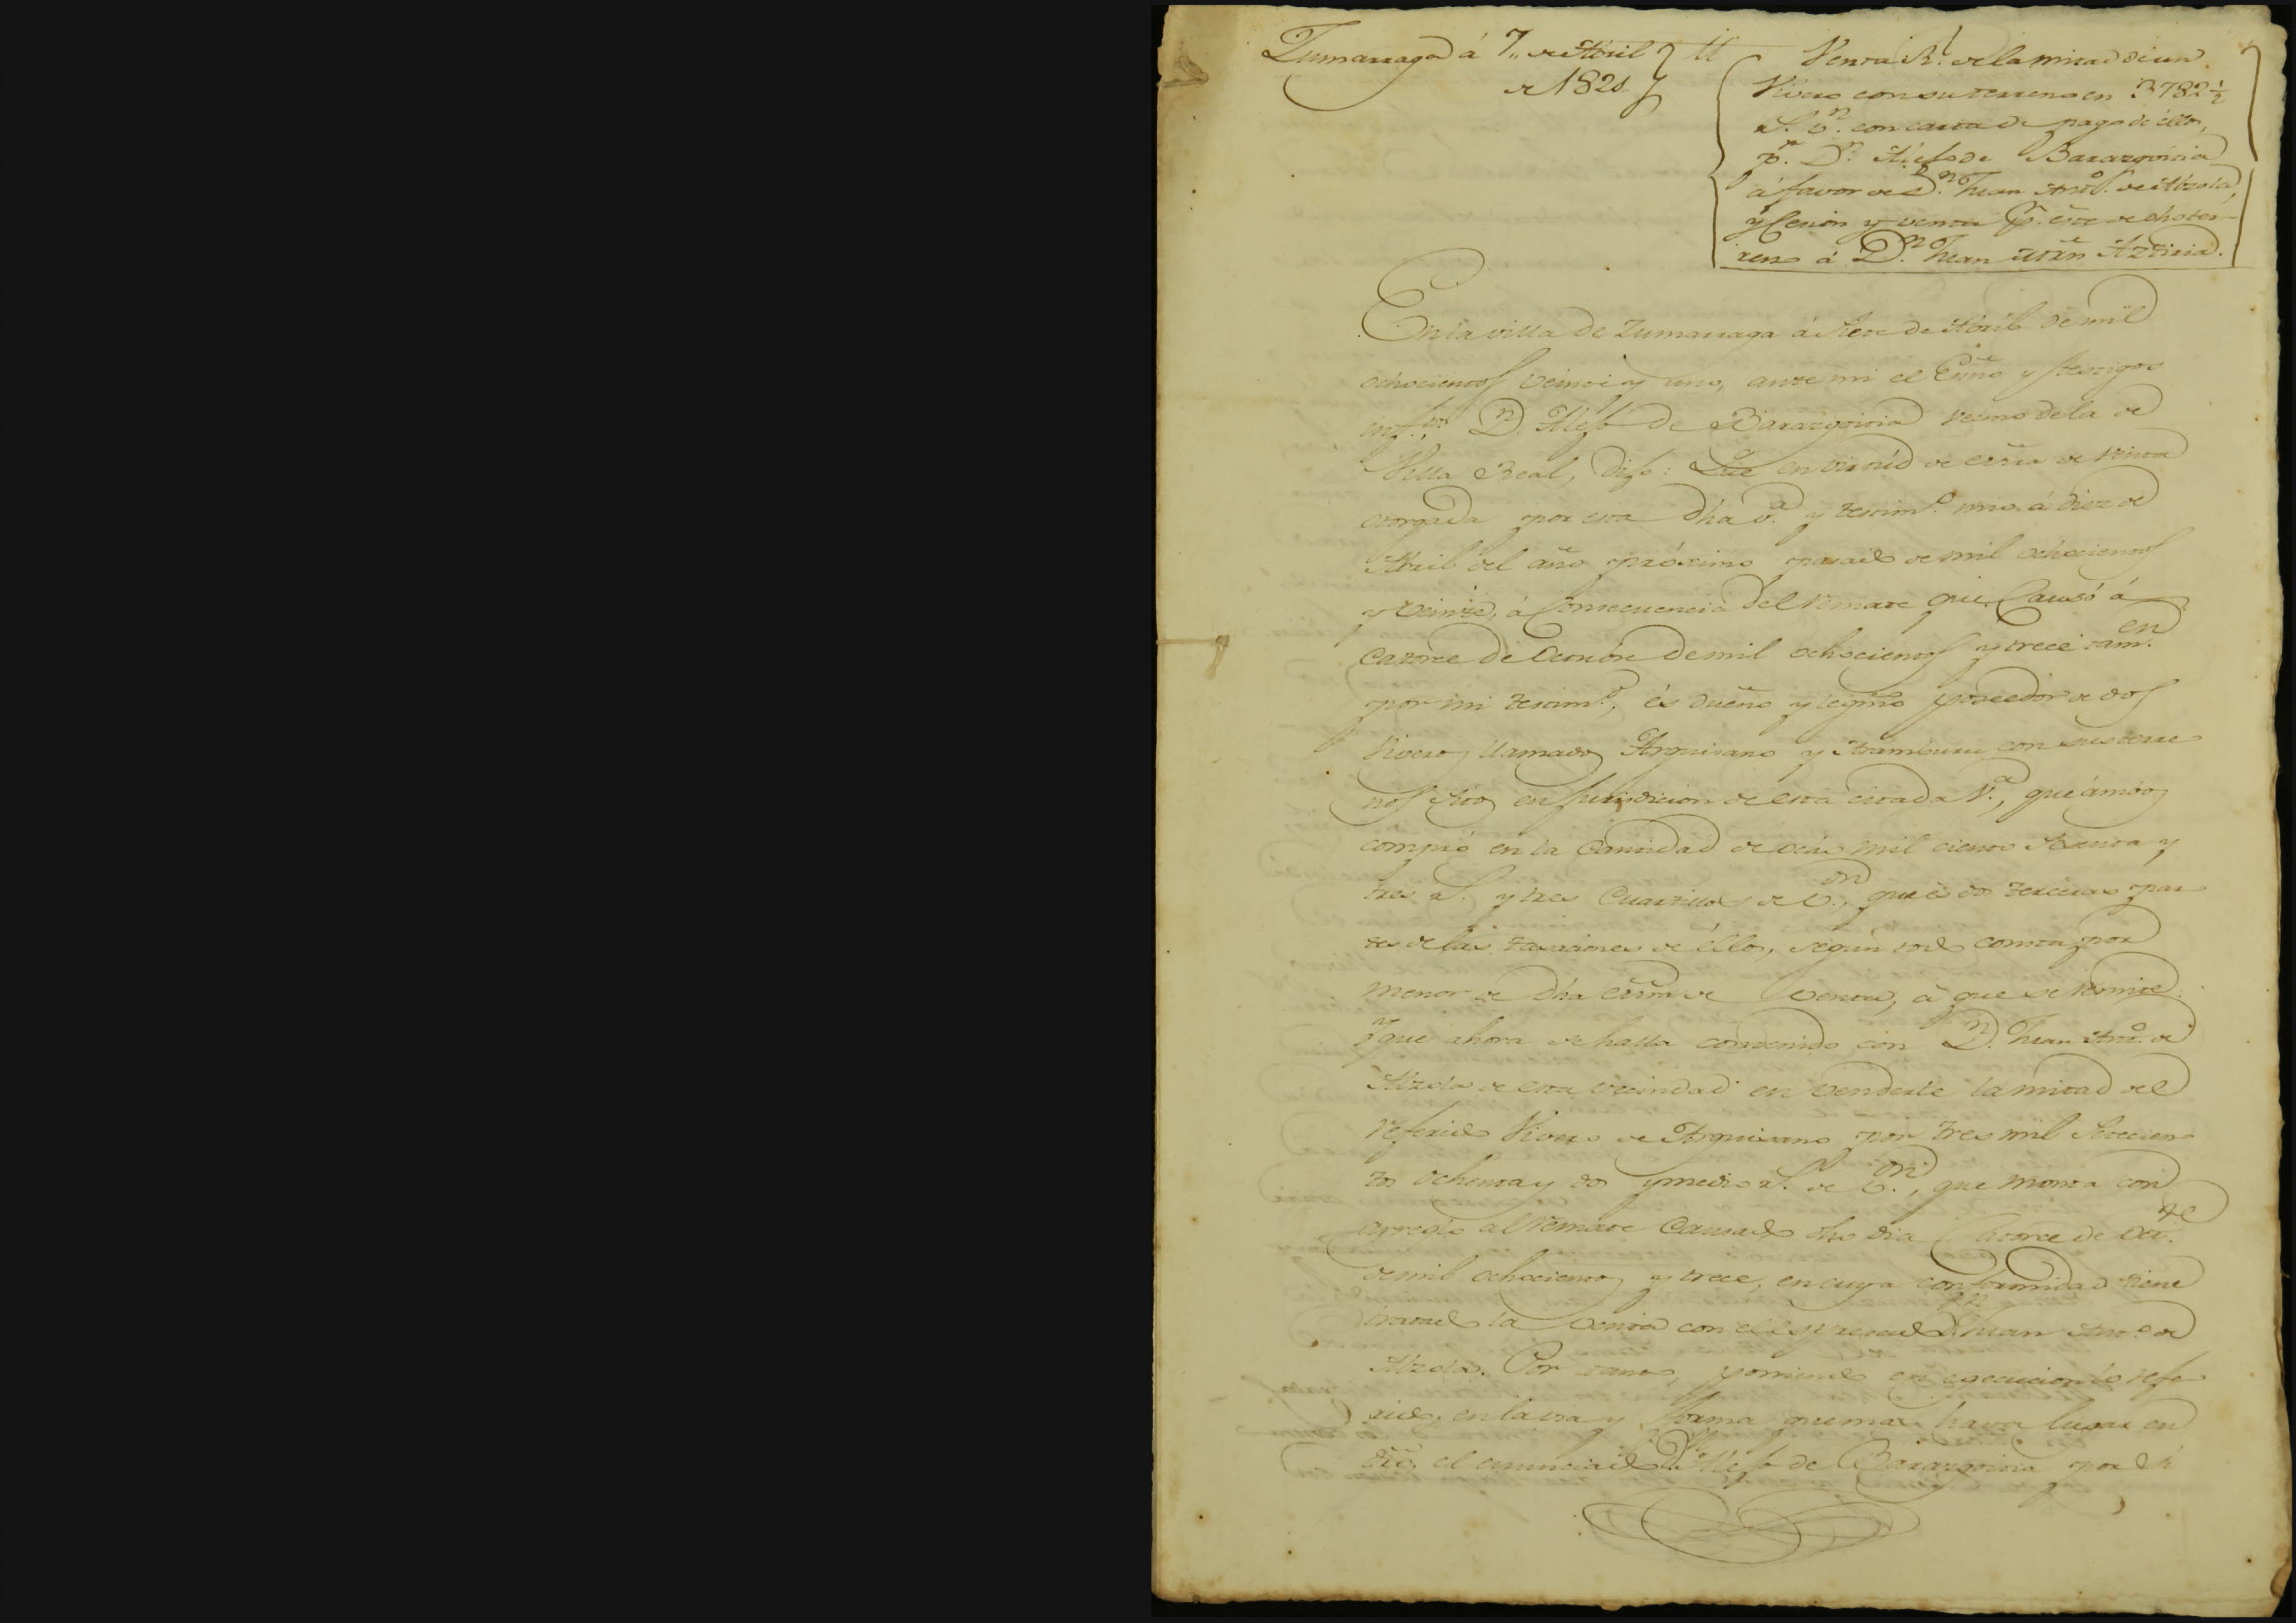 Zumarraga á 7,, de Abril
de 1821
Venta Rl. de la mitad de un
Vivero con su terreno en 3782 ½
rs. vn. con carta de pago de éllos,
pr. Dn. Alejo de Barazgoitia
á favor de Dn. Juan Anto. de Alzola,
y Cesion y venta pr. este de dho ter-
reno á Dn. Juan Azpiria.
En la villa de Zumarraga á siete de Abril de mil
ochocientos veinte y uno, ante mi el Esno y testigos
Dn. Alejo de Barazgoitia vecino de la de
Villa Real, dijo: Que en virtúd de esra de venta
otorgada por esta dha va. y testimo. mio á diez de
Abril del año próximo pasado de mil ochocientos
y veinte, á consecuencia del remate que causó á
catorce de Octubre de mil ochocientos y trece tamen.
por mi testimo., és dueño y legmo poseedor de dos
Viveros llamados Arguisano y con sus terre
nos sitos en jurisdicion de esta citada Va., que ámbos
compró en la cantidad de seis mil ciento setenta y
tres rs. y tres cuartillos de von., que és dos terceras par
tes de las tasaciones de éllos, según todo consta por
menor de dha esra de venta, á que se remite:
que ahora se halla convenido con Dn. Juan Anto. de
Alzola de esta vecindad en venderle la mitad del
referido Vivero de Arguisano por tres mil setecien
tos ochenta y dos y medio rs. de von., que monta con
arreglo al remate causado dho dia catorce de Octre.
de mil ochocientos y trece, en cuya conformidad tiene
tratado la venta con el espresado Dn. Juan Anto. de
Alzola. Por tanto, poniendo en egecucion lo refe
rido, en la via y forma que mas haya lugar en
dro. el enunciado Dn. Alejo de Barazgoitia por sí